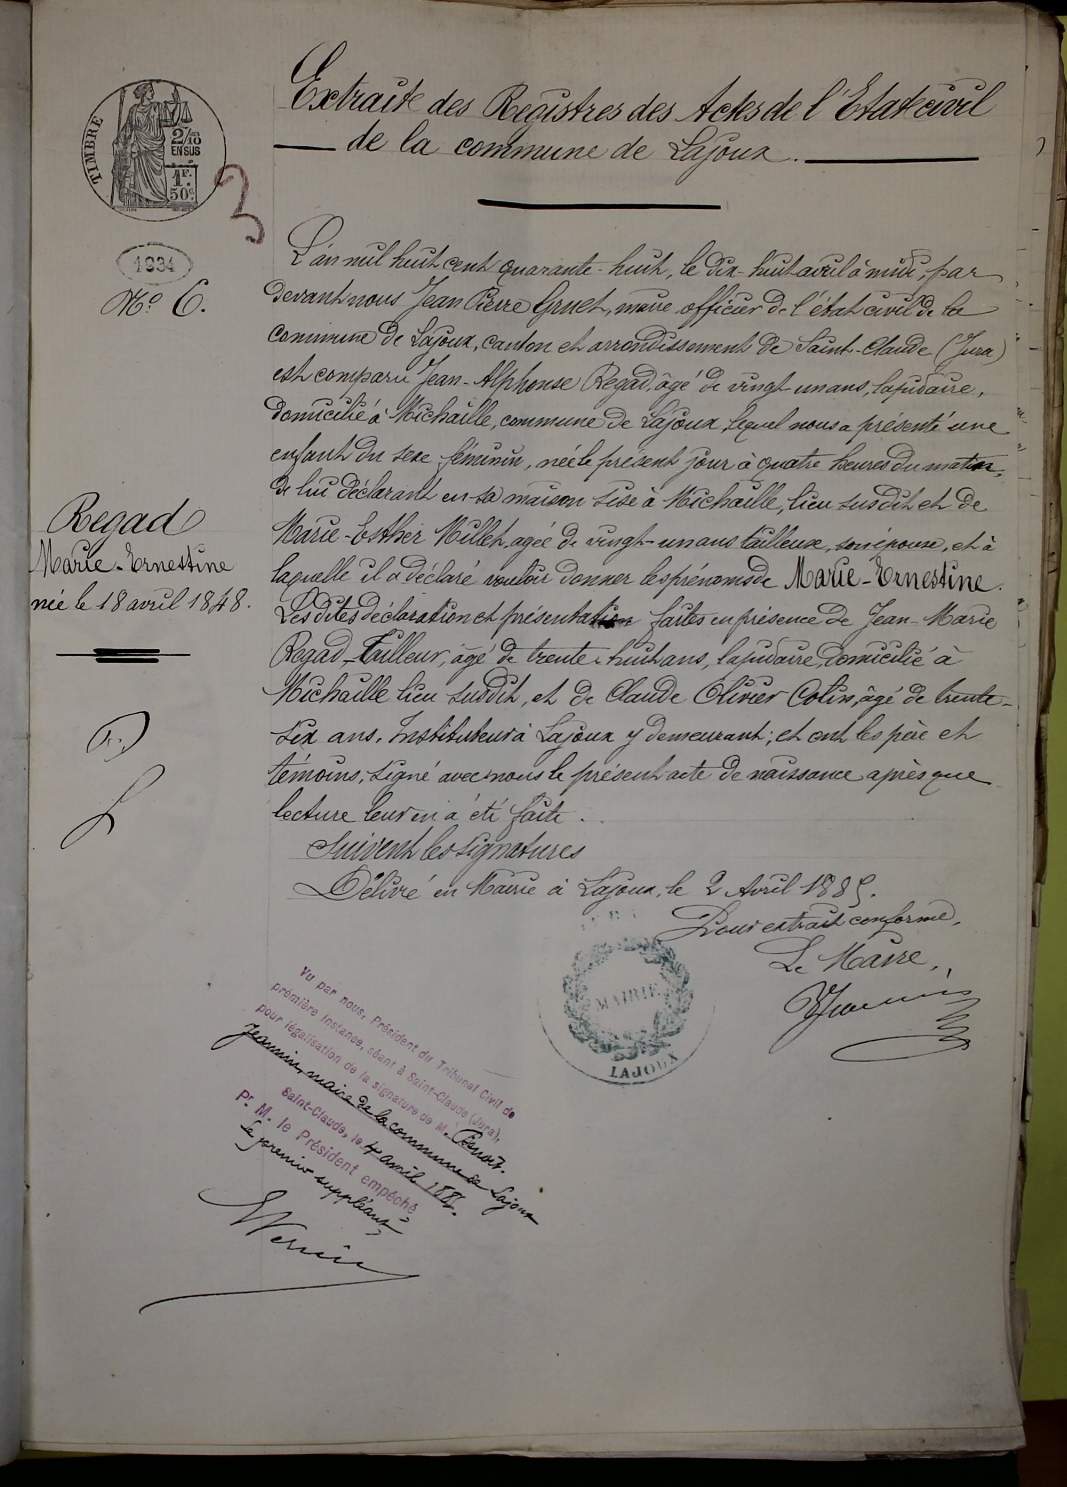 Extrait des Registres des Actes de l'Etat civil
de la commune de Lajoux.
TIMBRE
2/10
EN SUS
1F.
50c
3
1934
No 6.
Regad
Marie-Ernestine
née le 18 avril 1848.
L'an mil huit cent quarante-huit, le dix-huit avril à midi, par
devant nous Jean Pierre Gruet, maire officier de l'état civil de la
commune de Lajoux, canton et arrondissement de Saint-Claude (Jura)
est comparu Jean-Alphonse Regad âgé de vingt un ans, lapidaire,
domicilié à Michaille, commune de Lajoux, lequel nous a présenté une
enfant du sexe féminin, née le présent jour à quatre heures du matin,
de lui déclarant en sa maison sise à Michaille, lieu susdit et de
Marie-Esther Millet, agée de vingt-un ans tailleuse, son épouse, et à
laquelle il a déclaré vouloir donner les prénoms de Marie-Ernestine.
Les dites déclaration et présentation faites en présence de Jean-Marie
Regad-Tailleur, âgé de trente-huit ans, lapidaire, domicilié à
Michaille lieu susdit, et de Claude Olivier Cotin, âgé de trente-
six ans, Instituteur à Lajoux y demeurant; et ont les père et
témoins, signé avec nous le présent acte de naissance après que
lecture leur en a été faite.
Suivent les signatures
Délivré en Mairie à Lajoux, le 2 Avril 1885.
Pour extrait conforme,
Le Maire,
MAIRIE
LAJOUX
Vu par nous, Président du Tribunal Civil de
première Instance, séant à Saint-Claude (Jura),
pour légalisation de la signature de M. Benoit
Jeannin, maire de la commune de Lajoux
Saint-Claude, le 4 avril 1885.
Pr. M. le Président empêché
Le premier suppléant